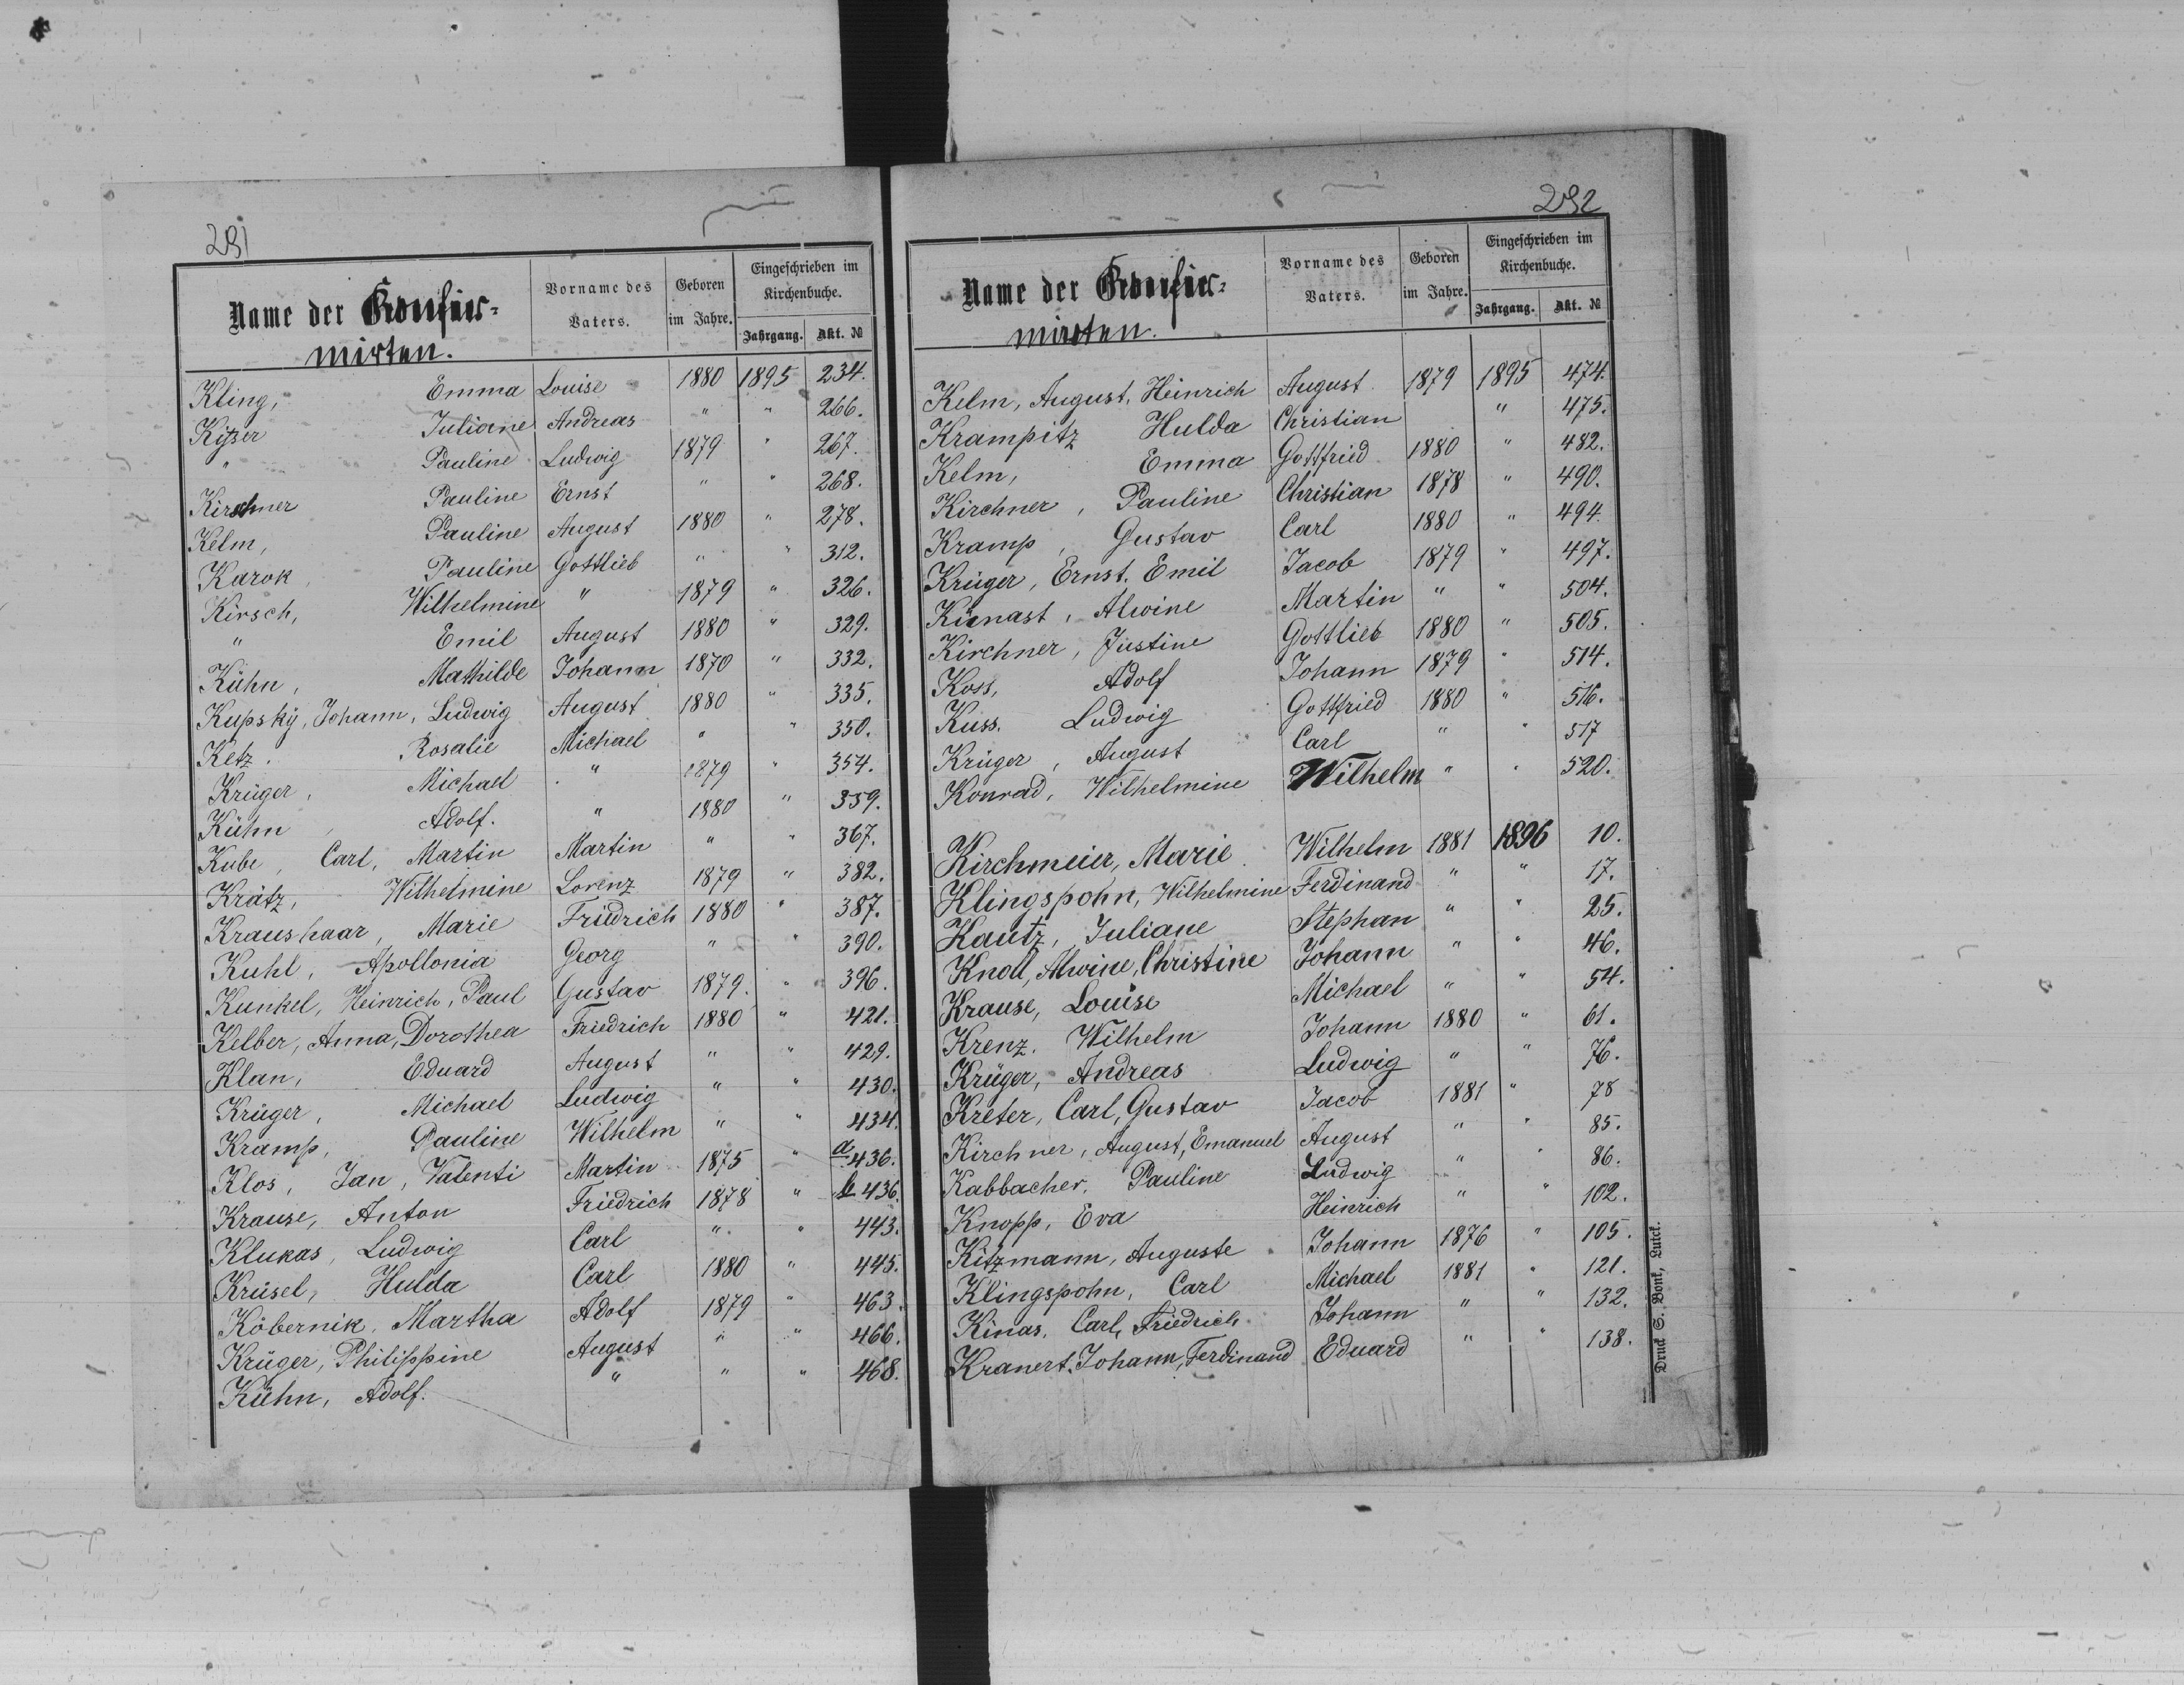 291
Name der Konfir-
mirten.
Vorname des Vaters.
Geboren im Jahre.
Eingeschrieben im Kirchenbuche.
Jahrgang. Akt. №
Kling, Emma Louise 1880 1895 234.
Kitzer Juliane Andreas " " 266.
" Pauline Ludwig 1879 " 267.
Kirschner Pauline Ernst " " 268.
Kelm, Pauline August 1880 " 278.
Karok, Pauline Gottlieb " " 312.
Kirsch, Wilhelmine " 1879 " 326.
" Emil August 1880 " 329.
Kühn, Mathilde Johann 1870 " 332.
Kupsky, Johann, Ludwig August 1880 " 335.
Ketz. Rosalie Michael " " 350.
Krüger, Michael " 1879 " 354.
Kühn, Adolf. " 1880 " 359.
Kube, Carl, Martin Martin " " 367.
Krätz, Wilhelmine Lorenz 1879 " 382.
Kraushaar, Marie Friedrich 1880 " 387.
Kuhl, Apollonia Georg " " 390.
Kunkel, Heinrich, Paul Gustav 1879. " 396.
Kelber, Anna, Dorothea Friedrich 1880 " 421.
Klan, Eduard August " " 429.
Krüger, Michael Ludwig " " 430.
Kramp, Pauline Wilhelm " " 434.
Klos, Jan, Valenti Martin 1875 " a 436.
Krause, Anton Friedrich 1878 " b 436.
Klukas, Ludwig Carl " " 443.
Krüsel, Hulda Carl 1880 " 445.
Köbernik, Martha Adolf 1879 " 463.
Krüger, Philippine August " " 466.
Kühn, Adolf. " " " 468.
292
Name der Konfir-
mirten.
Vorname des Vaters.
Geboren im Jahre.
Eingeschrieben im Kirchenbuche.
Jahrgang. Akt. №
Kelm, August, Heinrich August 1879 1895 474.
Krampitz Hulda Christian " 475.
Kelm, Emma Gottfried 1880 " 482.
Kirchner, Pauline Christian 1878 " 490.
Kramp, Gustav Carl 1880 " 494.
Krüger, Ernst. Emil Jacob 1879 " 497.
Kinast, Alwine Martin " " 504.
Kirchner, Justine Gottlieb 1880 " 505.
Koss, Adolf Johann 1879 " 514.
Kuss. Ludwig Gottfried 1880 " 516.
Krüger, August Carl " " 517
Konrad, Wilhelmine Wilhelm " " 520.
Kirchmeier, Marie Wilhelm 1881 1896 10.
Klingspohn, Wilhelmine Ferdinand " " 17.
Kautz, Juliane Stephan " " 25.
Knoll, Alwine, Christine Johann " " 46.
Krause, Louise Michael " " 54.
Krenz. Wilhelm Johann 1880 " 61.
Krüger, Andreas Ludwig " " 76.
Kreter, Carl, Gustav Jacob 1881 " 78
Kirchner, August, Emanuel August " " 85.
Kabbacher, Pauline Ludwig " " 86.
Knopp, Eva Heinrich " " 102.
Kitzmann, Auguste Johann 1876 " 105.
Klingspohn, Carl Michael 1881 " 121.
Kinas, Carl, Friedrich Johann " " 132.
Kranert, Johann, Ferdinand Eduard " " 138.
Druck S. Bonk, Luck.